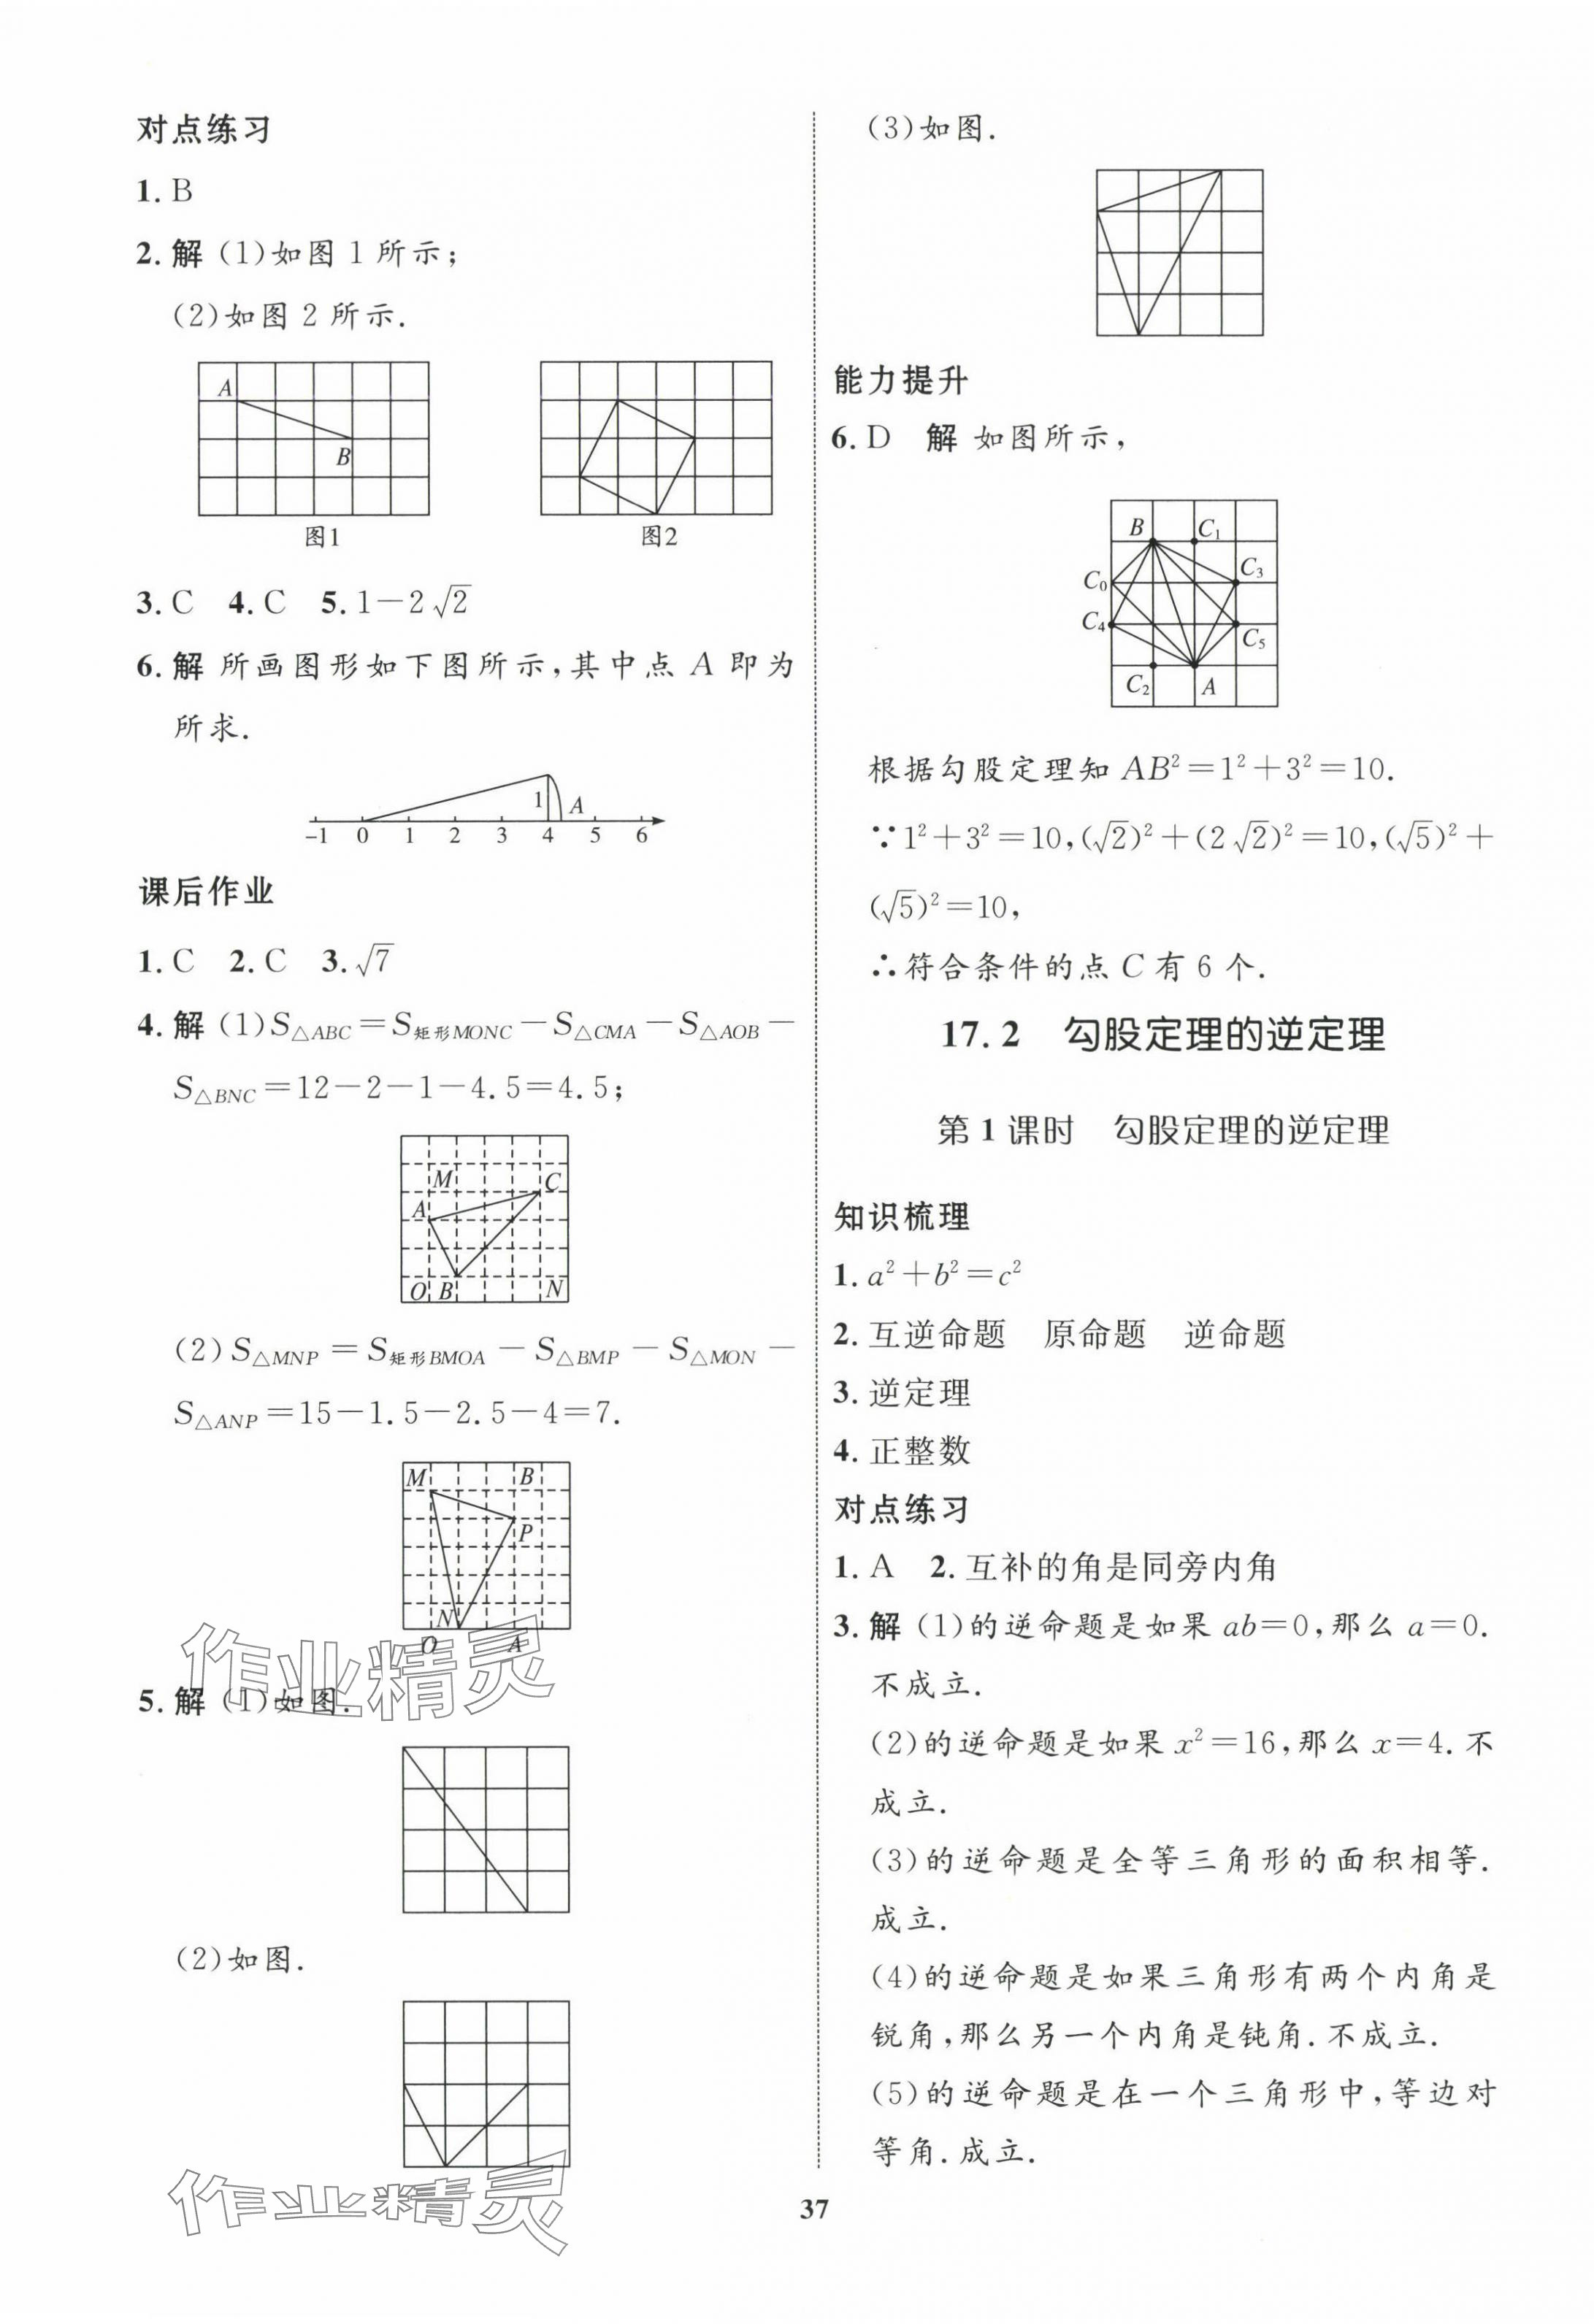 对点练习
1. B
2. 解 (1)如图 1 所示;
(2)如图 2 所示.
A
B
图1
图2
3. C 4. C 5. 1-2√2
6. 解 所画图形如下图所示,其中点 A 即为
所求.
1 A
-1 0 1 2 3 4 5 6
课后作业
1. C 2. C 3. √7
4. 解 (1)S△ABC=S矩形MONC-S△CMA-S△AOB-
S△BNC=12-2-1-4.5=4.5;
M C
A
O B N
(2)S△MNP=S矩形BMOA-S△BMP-S△MON-
S△ANP=15-1.5-2.5-4=7.
M B
P
N
O A
5. 解 (1)如图.
作业精灵
(2)如图.
作业精灵
(3)如图.
能力提升
6. D 解 如图所示,
B C₁
C₀ C₃
C₄ C₅
C₂ A
根据勾股定理知 AB²=1²+3²=10.
∵1²+3²=10,(√2)²+(2√2)²=10,(√5)²+
(√5)²=10,
∴符合条件的点 C 有 6 个.
17.2 勾股定理的逆定理
第 1 课时 勾股定理的逆定理
知识梳理
1. a²+b²=c²
2. 互逆命题 原命题 逆命题
3. 逆定理
4. 正整数
对点练习
1. A 2. 互补的角是同旁内角
3. 解 (1)的逆命题是如果 ab=0,那么 a=0.
不成立.
(2)的逆命题是如果 x²=16,那么 x=4. 不
成立.
(3)的逆命题是全等三角形的面积相等.
成立.
(4)的逆命题是如果三角形有两个内角是
锐角,那么另一个内角是钝角. 不成立.
(5)的逆命题是在一个三角形中,等边对
等角. 成立.
37